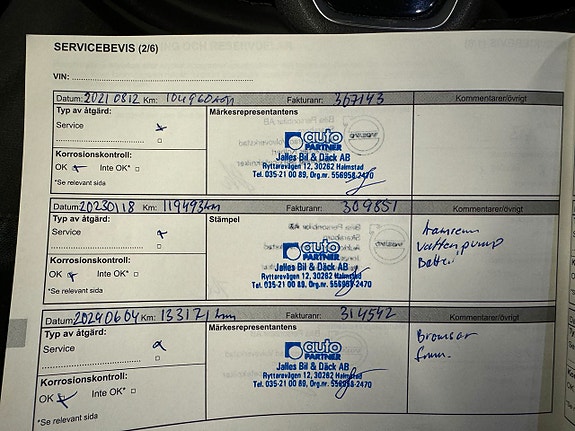 SERVICEBEVIS (2/6)
VIN:
Datum: 20210812 Km: 104960 km Fakturanr: 367143 Kommentarer/övrigt
Typ av åtgärd: Märkesrepresentantens
Service x
Korrosionskontroll:
OK x Inte OK*
*Se relevant sida
auto PARTNER
Jalles Bil & Däck AB
Ryttarevägen 12, 30262 Halmstad
Tel. 035-21 00 89, Org.nr. 556958-2470
Datum: 20230118 Km: 119493 km Fakturanr: 309851 Kommentarer/övrigt
Typ av åtgärd: Stämpel
Service x
Korrosionskontroll:
OK x Inte OK*
*Se relevant sida
auto PARTNER
Jalles Bil & Däck AB
Ryttarevägen 12, 30262 Halmstad
Tel. 035-21 00 89, Org.nr. 556958-2470
Kamrem
Vattenpump
Batteri
Datum: 20240604 Km: 133171 km Fakturanr: 314542 Kommentarer/övrigt
Typ av åtgärd: Märkesrepresentantens
Service x
Korrosionskontroll:
OK x Inte OK*
*Se relevant sida
auto PARTNER
Jalles Bil & Däck AB
Ryttarevägen 12, 30262 Halmstad
Tel. 035-21 00 89, Org.nr. 556958-2470
Bromsar